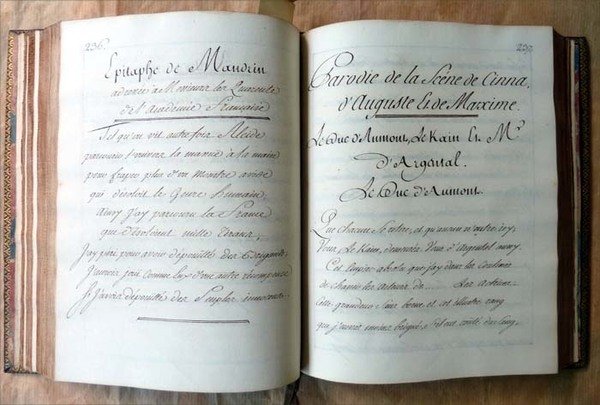 236.
Epitaphe de Mandrin
adressée à Messieurs les Quarante
de l'académie Française
Tel qu'on vit autre fois Alcide
parcourir l'univers la massue à la main
pour frapper plus d'un Monstre avide
qui desoloit le Genre humain,
ainsy j'ay parcouru la France
que désoloient mille tirans,
j'ay péri pour avoir dépouillé des
j'aurois joui comme luy d'une autre récompense
si j'avois dépouillé des Peuples innocents.
Parodie de la Scêne de Cinna,
d'Auguste & de Maxime.
Le Duc d'Aumont, Le Kain Et Mr.
d'Argental.
Le Duc d'Aumont.
Que chacun se retire, et qu'aucun n'entre icy,
Vous, Le Kain, demeurez, Vous d'Argental aussy.
Cet Empire absolu que j'ay dans les Coulisses
de chasser les acteurs, de Les actrices
cette grandeur sans borne et cet illustre rang
que j'eusse moins brigué, s'il eut couté du sang